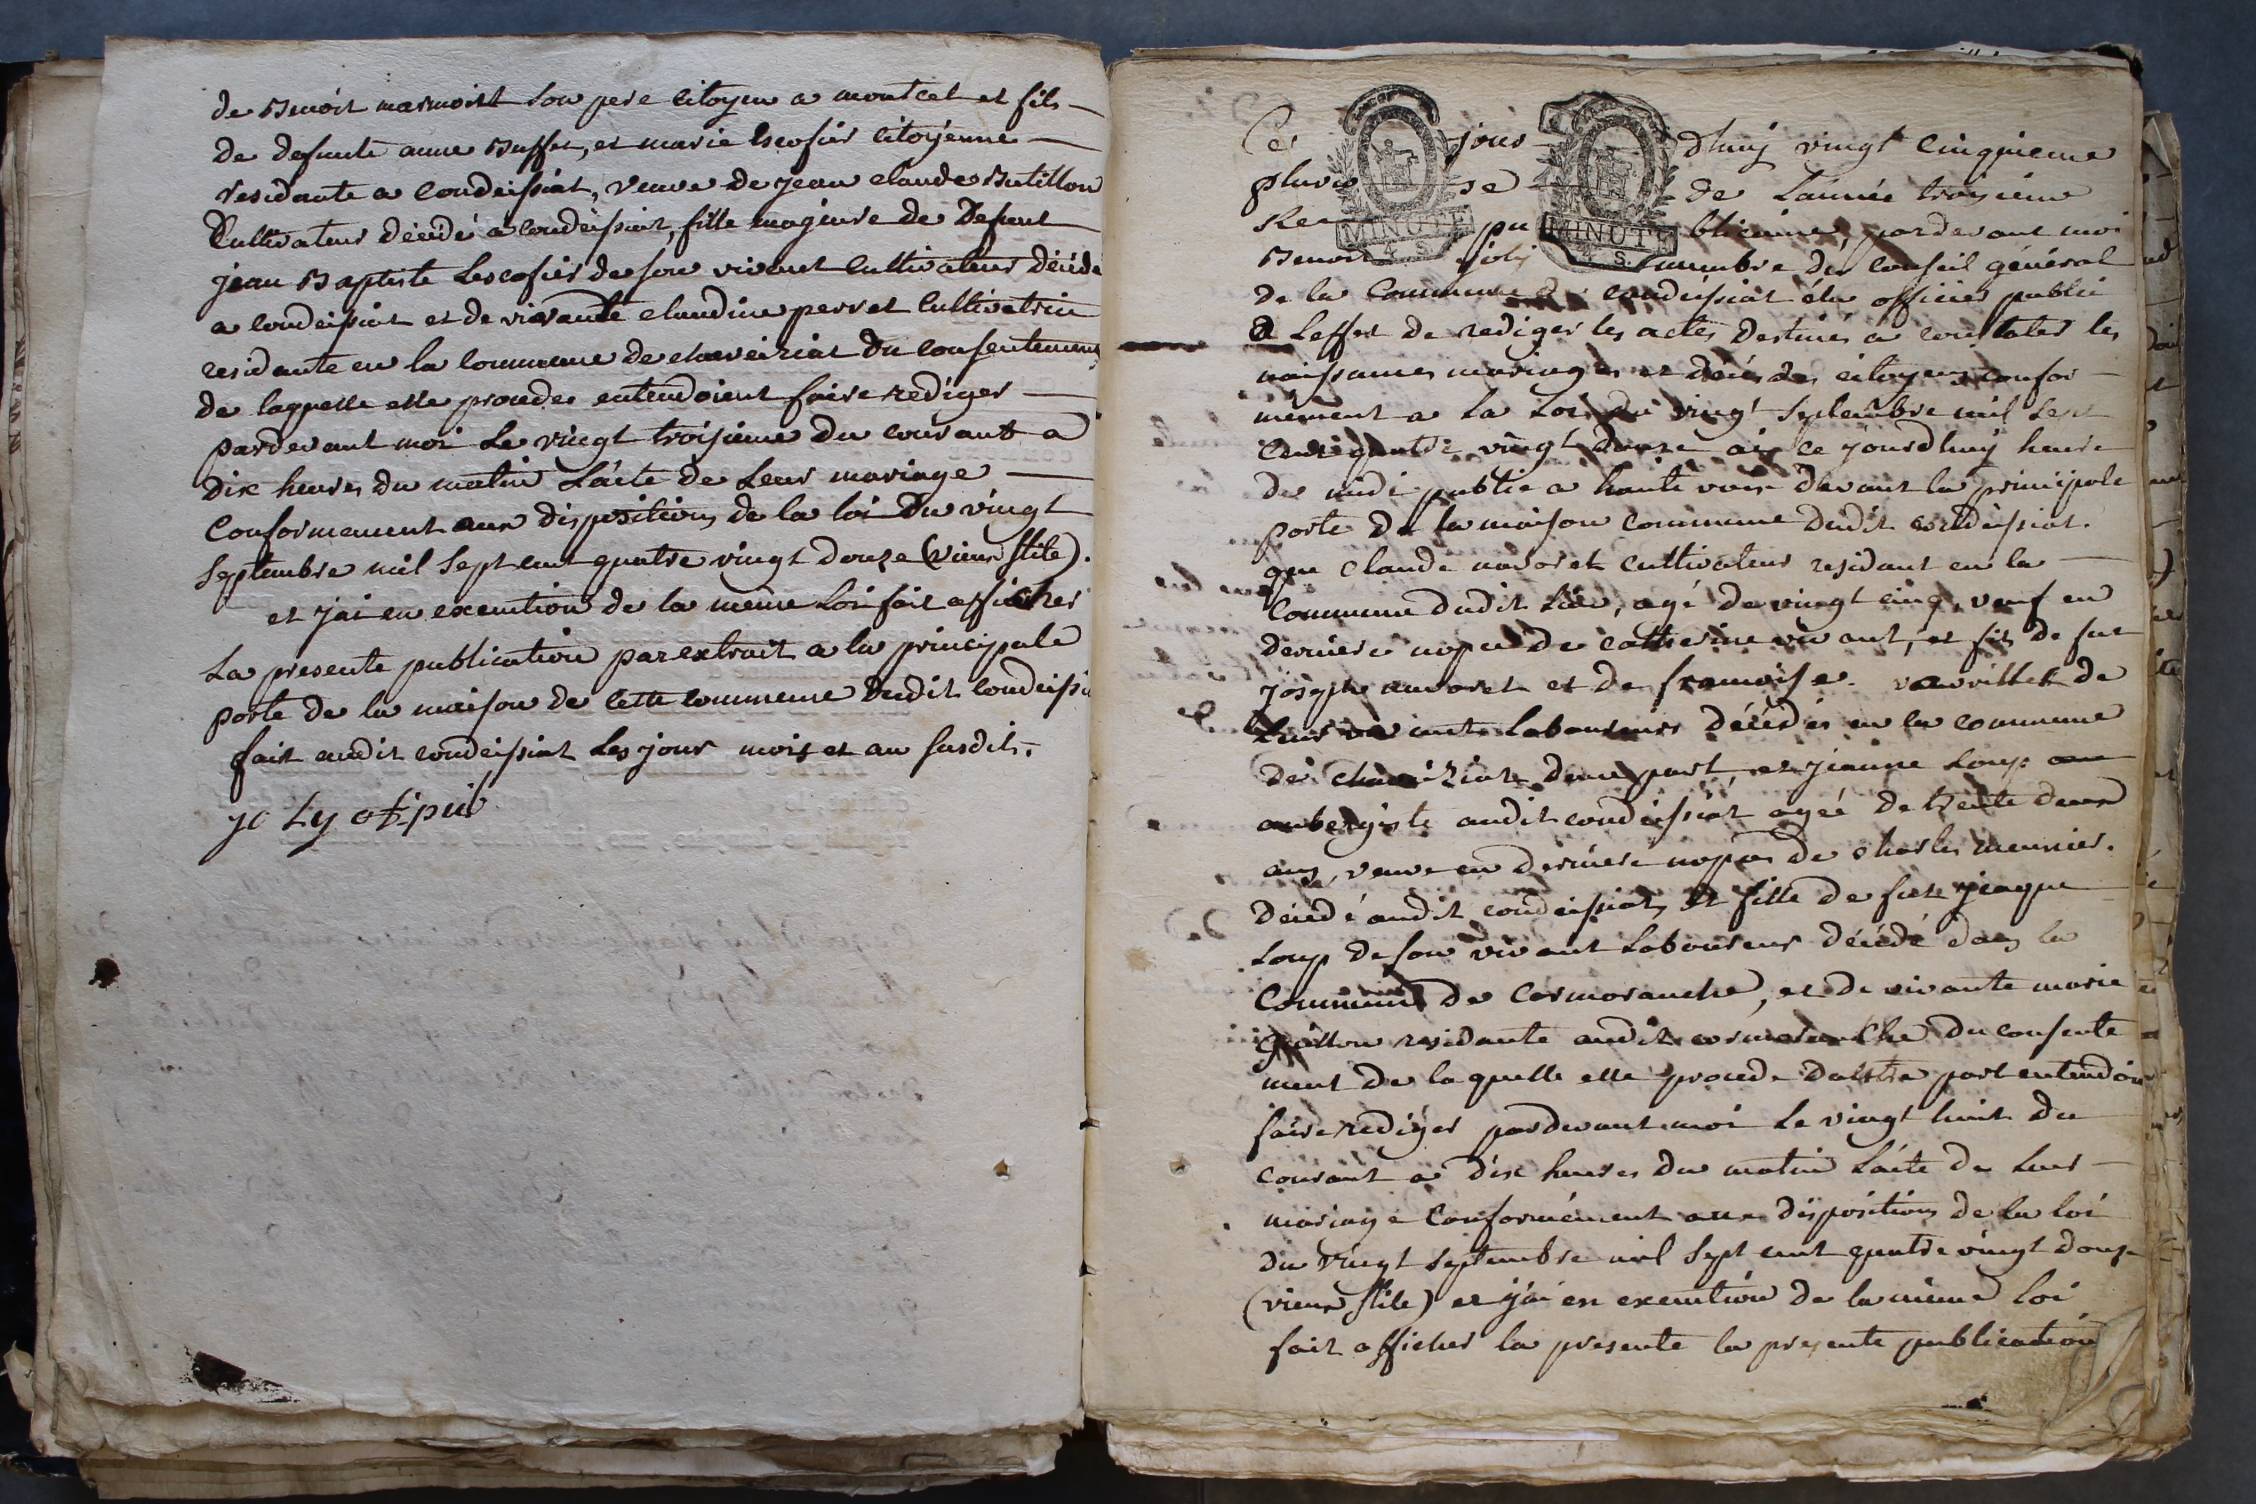 de Benoit marmont son pere citoyen a montcet et fils
de defunte anne Buffet, et marie Lescofier citoyenne
residante a condeissiat, veuve de jean claude Butillon
Cultivateur décédé a condeissiat, fille majeure de Defunt
jean Baptiste Lescofier de son vivant Cultivateur décédé
a condeissiat et de vivante claudine perret Cultivatrice
residante en la commune de chaveiriat du consentement
de laquelle elle procedee entendoient faire rediger
pardevant moi Le vingt troisieme du courant a
dix heures du matin Lácte de Leur mariage
Conformement aux dispositions de la loi Du vingt
septembre mil sept cent quatre vingt douze (vieux stile).
et j'ai en execution de la même Loi fait afficher
La presente publication par extrait a la principale
porte de la maison de cette commune dudit condeissia
fait audit condeissiat Les jour mois et an susdit.
joLy of. pui
Ce jour dhuy vingt cinquieme
pluvio se de Lánnée troisieme
Re pu blicaine, pardevant moi
Benoit joly membre du Conseil général
de la Commune de condeissiat élu officier public
a Leffet de rediger les actes Destinés a constater les
naissances mariages et décés des citoyens confor
mément a la Loi du vingt septembre mil sept
Cent quatre vingt douze ai ce jourdhuy heure
de midi publié a haute voix devant la principale
porte de la maison commune dudit condeissiat.
que Claude navoret cultivateur residant en la
Commune dudit Lieu, agé de vingt cinq, veuf en
derniere nopce de catherine vivant, et fils de fut
joseph navoret et de francoise vauvillet de
Leur vivants Laboureurs décédés en la commune
de chaveiriat dune part, et jeanne Loup
aubergiste audit condeissiat agée de trente deux
ans, veuve en derniere nopces de charles meunier.
décédé audit condeissiat, et fille de fut jeaque
Loup de son vivant Laboureur décédé dans la
Commune de Cormoranche, et de vivante marie
residante audit cormoranche du consente
ment de laquelle elle procede Dautre part entendoi
faire rediger pardevant moi Le vingt huit du
courant a dix heures du matin Lácte de Leur
mariage Conformément aux dispositions de la loi
du vingt septembre mil sept cent quatre vingt douze
(vieux stile) et j'ai en execution de la même loi
fait afficher la presente la presente publication